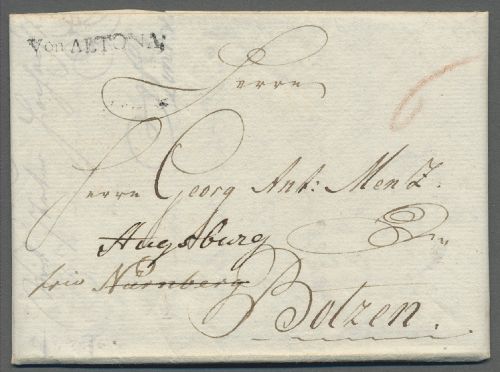 Von ALTONA
Herrn
Herrn Georg Ant: Menz.
Augsburg
In
frco Nürnberg
Botzen.